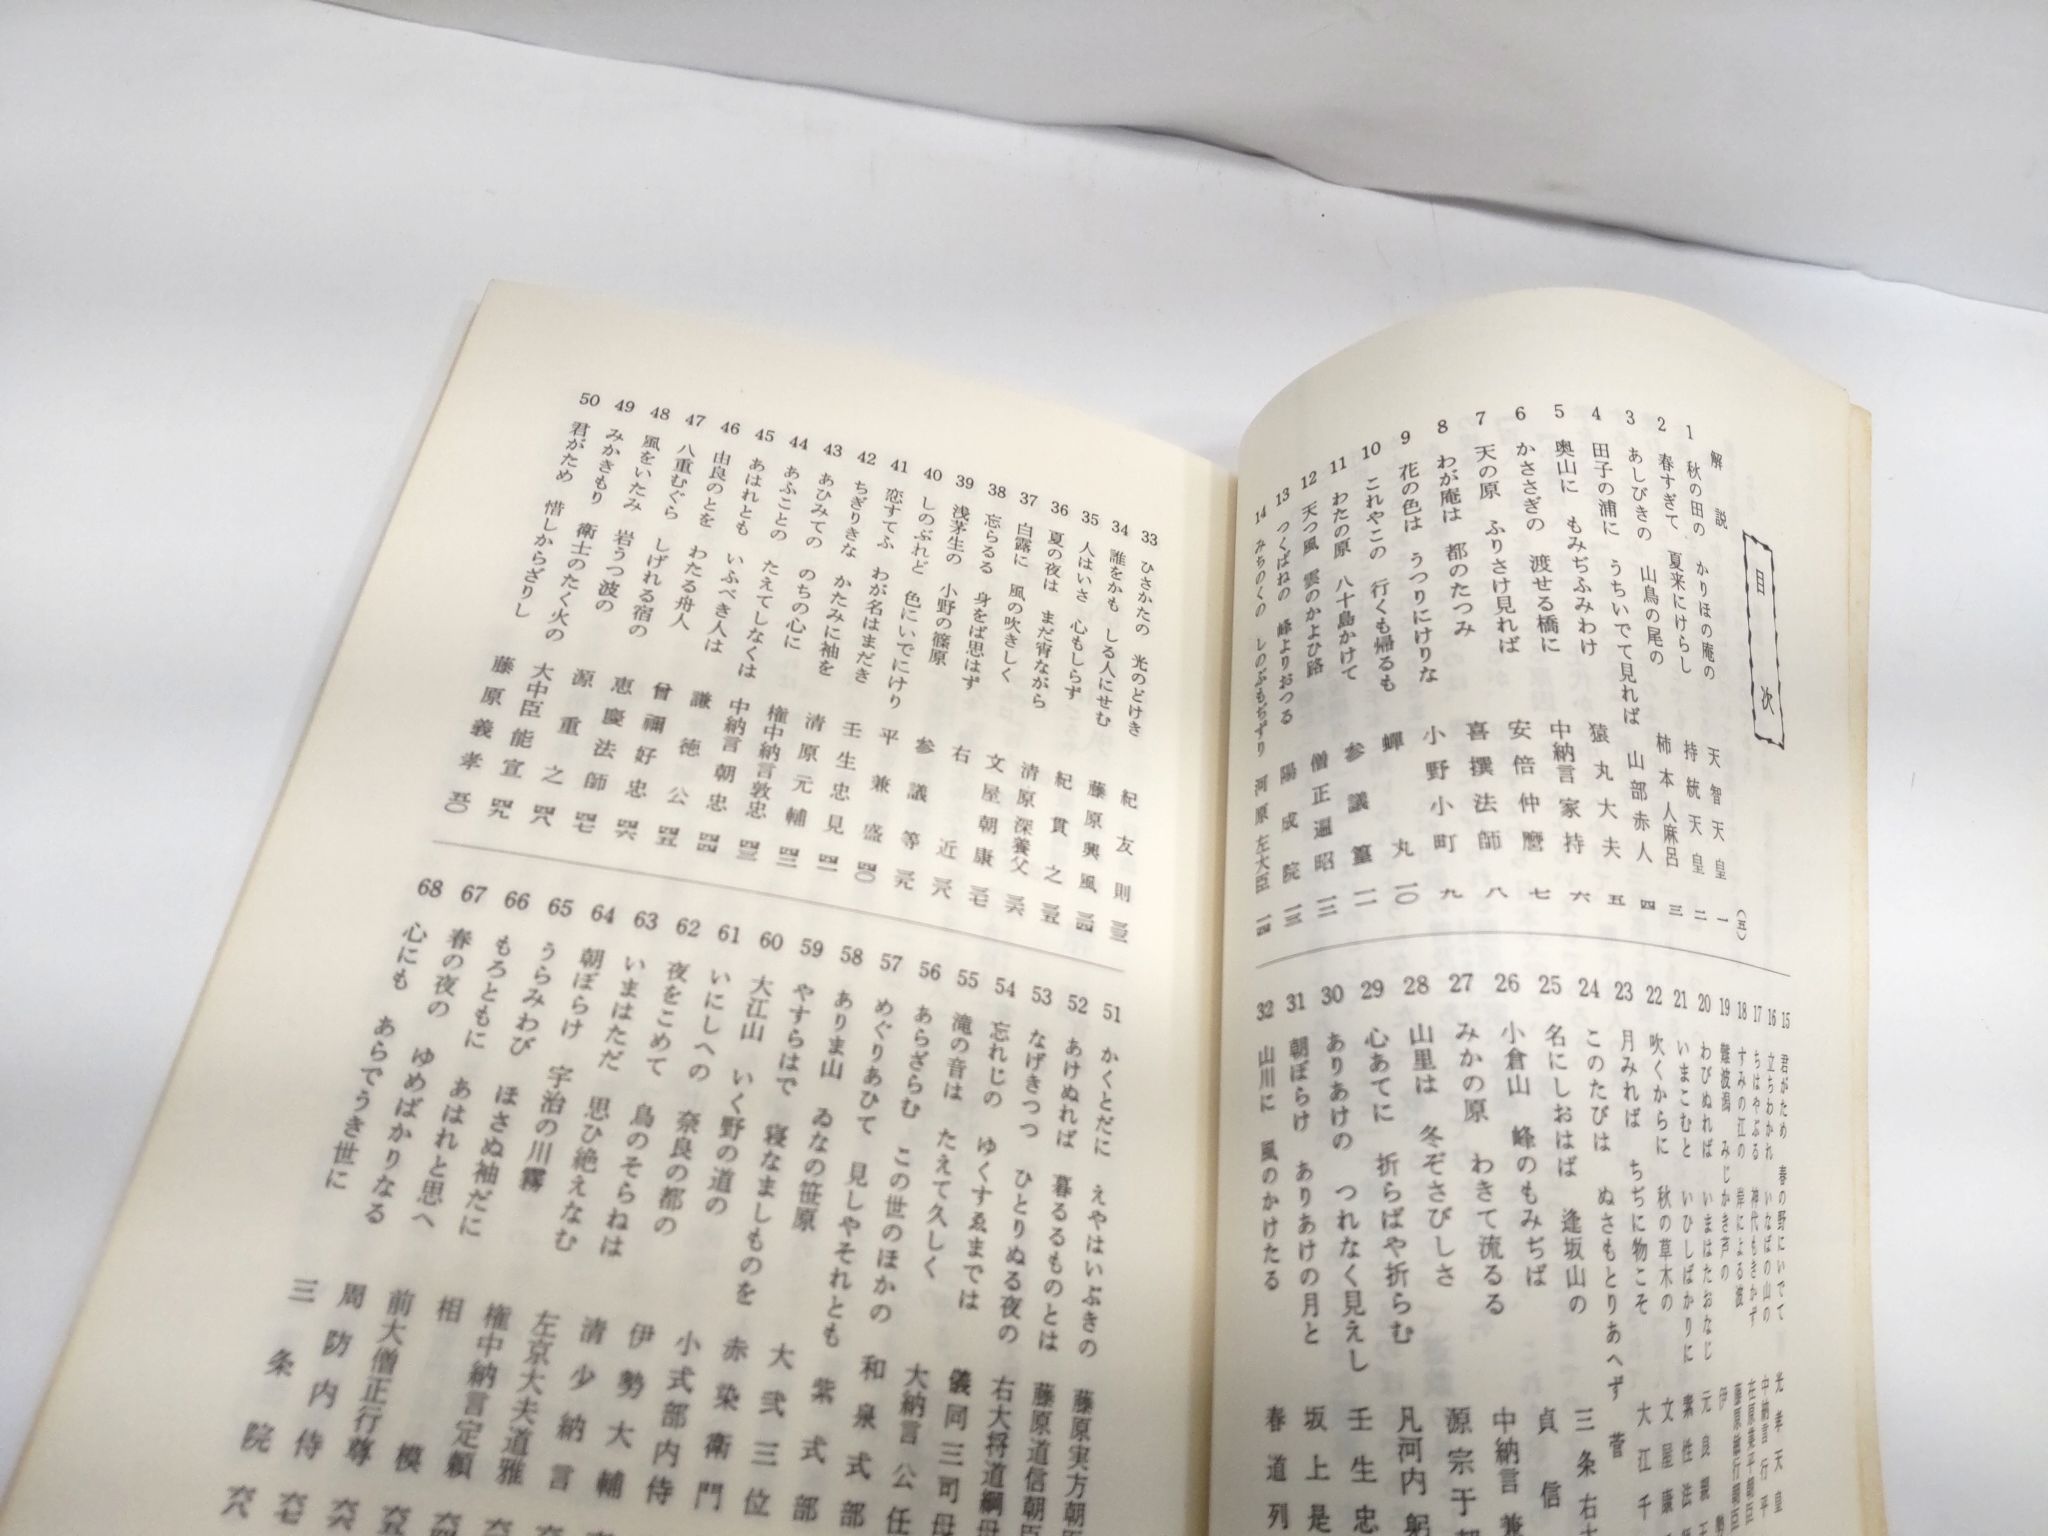 目次
解説 (五)
1 秋の田の かりほの庵の 天智天皇 一
2 春すぎて 夏来にけらし 持統天皇 二
3 あしびきの 山鳥の尾の 柿本人麻呂 三
4 田子の浦に うちいでて見れば 山部赤人 四
5 奥山に もみぢふみわけ 猿丸大夫 五
6 かささぎの 渡せる橋に 中納言家持 六
7 天の原 ふりさけ見れば 安倍仲麿 七
8 わが庵は 都のたつみ 喜撰法師 八
9 花の色は うつりにけりな 小野小町 九
10 これやこの 行くも帰るも 蟬丸 一〇
11 わたの原 八十島かけて 参議篁 一一
12 天つ風 雲のかよひ路 僧正遍昭 一二
13 つくばねの 峰よりおつる 陽成院 一三
14 みちのくの しのぶもぢずり 河原左大臣 一四
15 君がため 春の野にいでて 光孝天皇
16 立ちわかれ いなばの山の 中納言行平
17 ちはやぶる 神代もきかず 在原業平朝臣
18 すみの江の 岸による波 藤原敏行朝臣
19 難波潟 みじかき芦の 伊勢
20 わびぬれば いまはたおなじ 元良親王
21 いまこむと いひしばかりに 素性法師
22 吹くからに 秋の草木の 文屋康
23 月みれば ちぢに物こそ 大江千
24 このたびは ぬさもとりあへず 菅
25 名にしおはば 逢坂山の 三条右
26 小倉山 峰のもみぢば 貞信
27 みかの原 わきて流るる 中納言兼
28 山里は 冬ぞさびしさ 源宗于
29 心あてに 折らばや折らむ 凡河内躬
30 ありあけの つれなく見えし 壬生忠
31 朝ぼらけ ありあけの月と 坂上是
32 山川に 風のかけたる 春道列
33 ひさかたの 光のどけき 紀友則 三三
34 誰をかも しる人にせむ 藤原興風 三四
35 人はいさ 心もしらず 紀貫之 三五
36 夏の夜は まだ宵ながら 清原深養父 三六
37 白露に 風の吹きしく 文屋朝康 三七
38 忘らるる 身をば思はず 右近 三八
39 浅茅生の 小野の篠原 参議等 三九
40 しのぶれど 色にいでにけり 平兼盛 四〇
41 恋すてふ わが名はまだき 壬生忠見 四一
42 ちぎりきな かたみに袖を 清原元輔 四二
43 あひみての のちの心に 権中納言敦忠 四三
44 あふことの たえてしなくは 中納言朝忠 四四
45 あはれとも いふべき人は 謙徳公 四五
46 由良のとを わたる舟人 曾禰好忠 四六
47 八重むぐら しげれる宿の 恵慶法師 四七
48 風をいたみ 岩うつ波の 源重之 四八
49 みかきもり 衛士のたく火の 大中臣能宣 四九
50 君がため 惜しからざりし 藤原義孝 五〇
51 かくとだに えやはいぶきの 藤原実方朝
52 あけぬれば 暮るるものとは 藤原道信朝臣
53 なげきつつ ひとりぬる夜の 右大将道綱母
54 忘れじの ゆくすゑまでは 儀同三司母
55 滝の音は たえて久しく 大納言公任
56 あらざらむ この世のほかの 和泉式部
57 めぐりあひて 見しやそれとも 紫式部
58 ありま山 ゐなの笹原 大弐三位
59 やすらはで 寝なましものを 赤染衛門
60 大江山 いく野の道の 小式部内侍
61 いにしへの 奈良の都の 伊勢大輔
62 夜をこめて 鳥のそらねは 清少納言
63 いまはただ 思ひ絶えなむ 左京大夫道雅
64 朝ぼらけ 宇治の川霧 権中納言定頼 六四
65 うらみわび ほさぬ袖だに 相模 六五
66 もろともに あはれと思へ 前大僧正行尊 六六
67 春の夜の ゆめばかりなる 周防内侍 六七
68 心にも あらでうき世に 三条院 六八